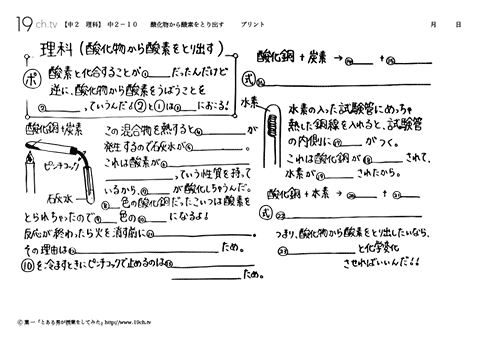 19ch.tv 【中2 理科】 中2-10 酸化物から酸素をとり出す プリント 月 日
理科(酸化物から酸素をとり出す)
ポ 酸素と化合することが①___だったんだけど
逆に、酸化物から酸素をうばうことを
②___っていうんだ!②と①は③___におこる!
酸化銅+炭素
ピンチコック
石灰水
この混合物を熱すると④___が
発生するので石灰水が⑤___。
これは酸素が⑥___
___っていう性質を持って
いるから、⑦___が酸化しちゃうんだ。
⑧___色の酸化銅だったこいつは酸素を
とられちゃったので⑨___色の⑩___になるよ!
反応が終わったら火を消す前に⑪___。
その理由は⑫___ため。
⑩を冷ますときにピンチコックで止めるのは⑬___
___ため。
酸化銅+炭素→⑭___+⑮___
式⑯___
水素
水素の入った試験管にめっちゃ
熱した銅線を入れると、試験管
の内側に⑰___がつく。
これは酸化銅が⑱___されて、
水素が⑲___されたから。
酸化銅+水素→⑳___+㉑___
式㉒___
つまり、酸化物から酸素をとり出したいなら、
㉓___と化学変化
させればいいんだ!!
Ⓒ 葉一「とある男が授業をしてみた」http://www.19ch.tv